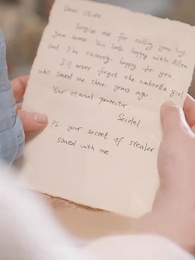 Dear
Forgive me for calling you by
your name. You look happy with Allen
and I'm really happy for you
I'll never forget the umbrella girl
who saved me three years ago
Your eternal protector
Seidel
PS: your secret of stealer
saved with me